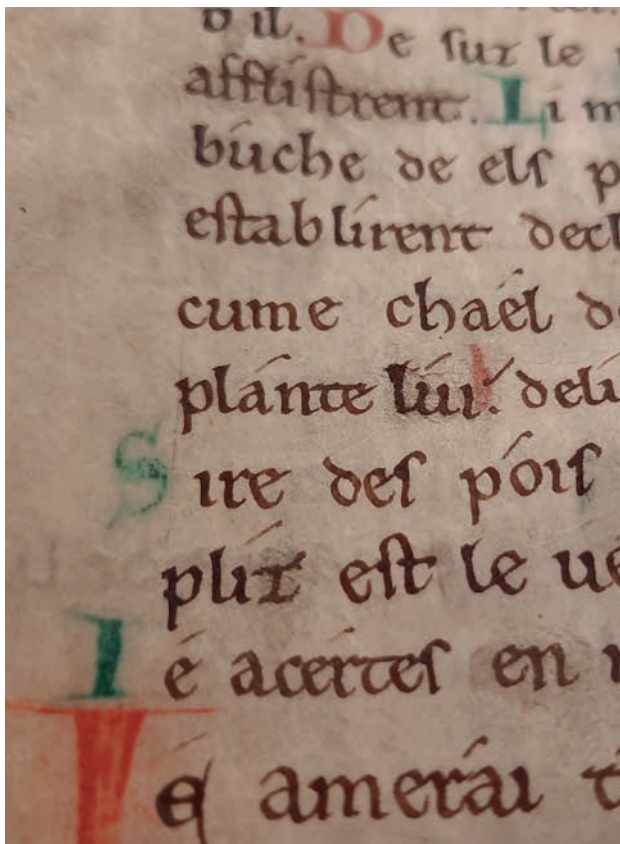 d il. De sur le
afflistrent. Li m
búche de els p
establírent decl
cume chaél d
plánte lúi. deli
Sire des póis
plír est le ué
Ié acértes en
Ié amerái t